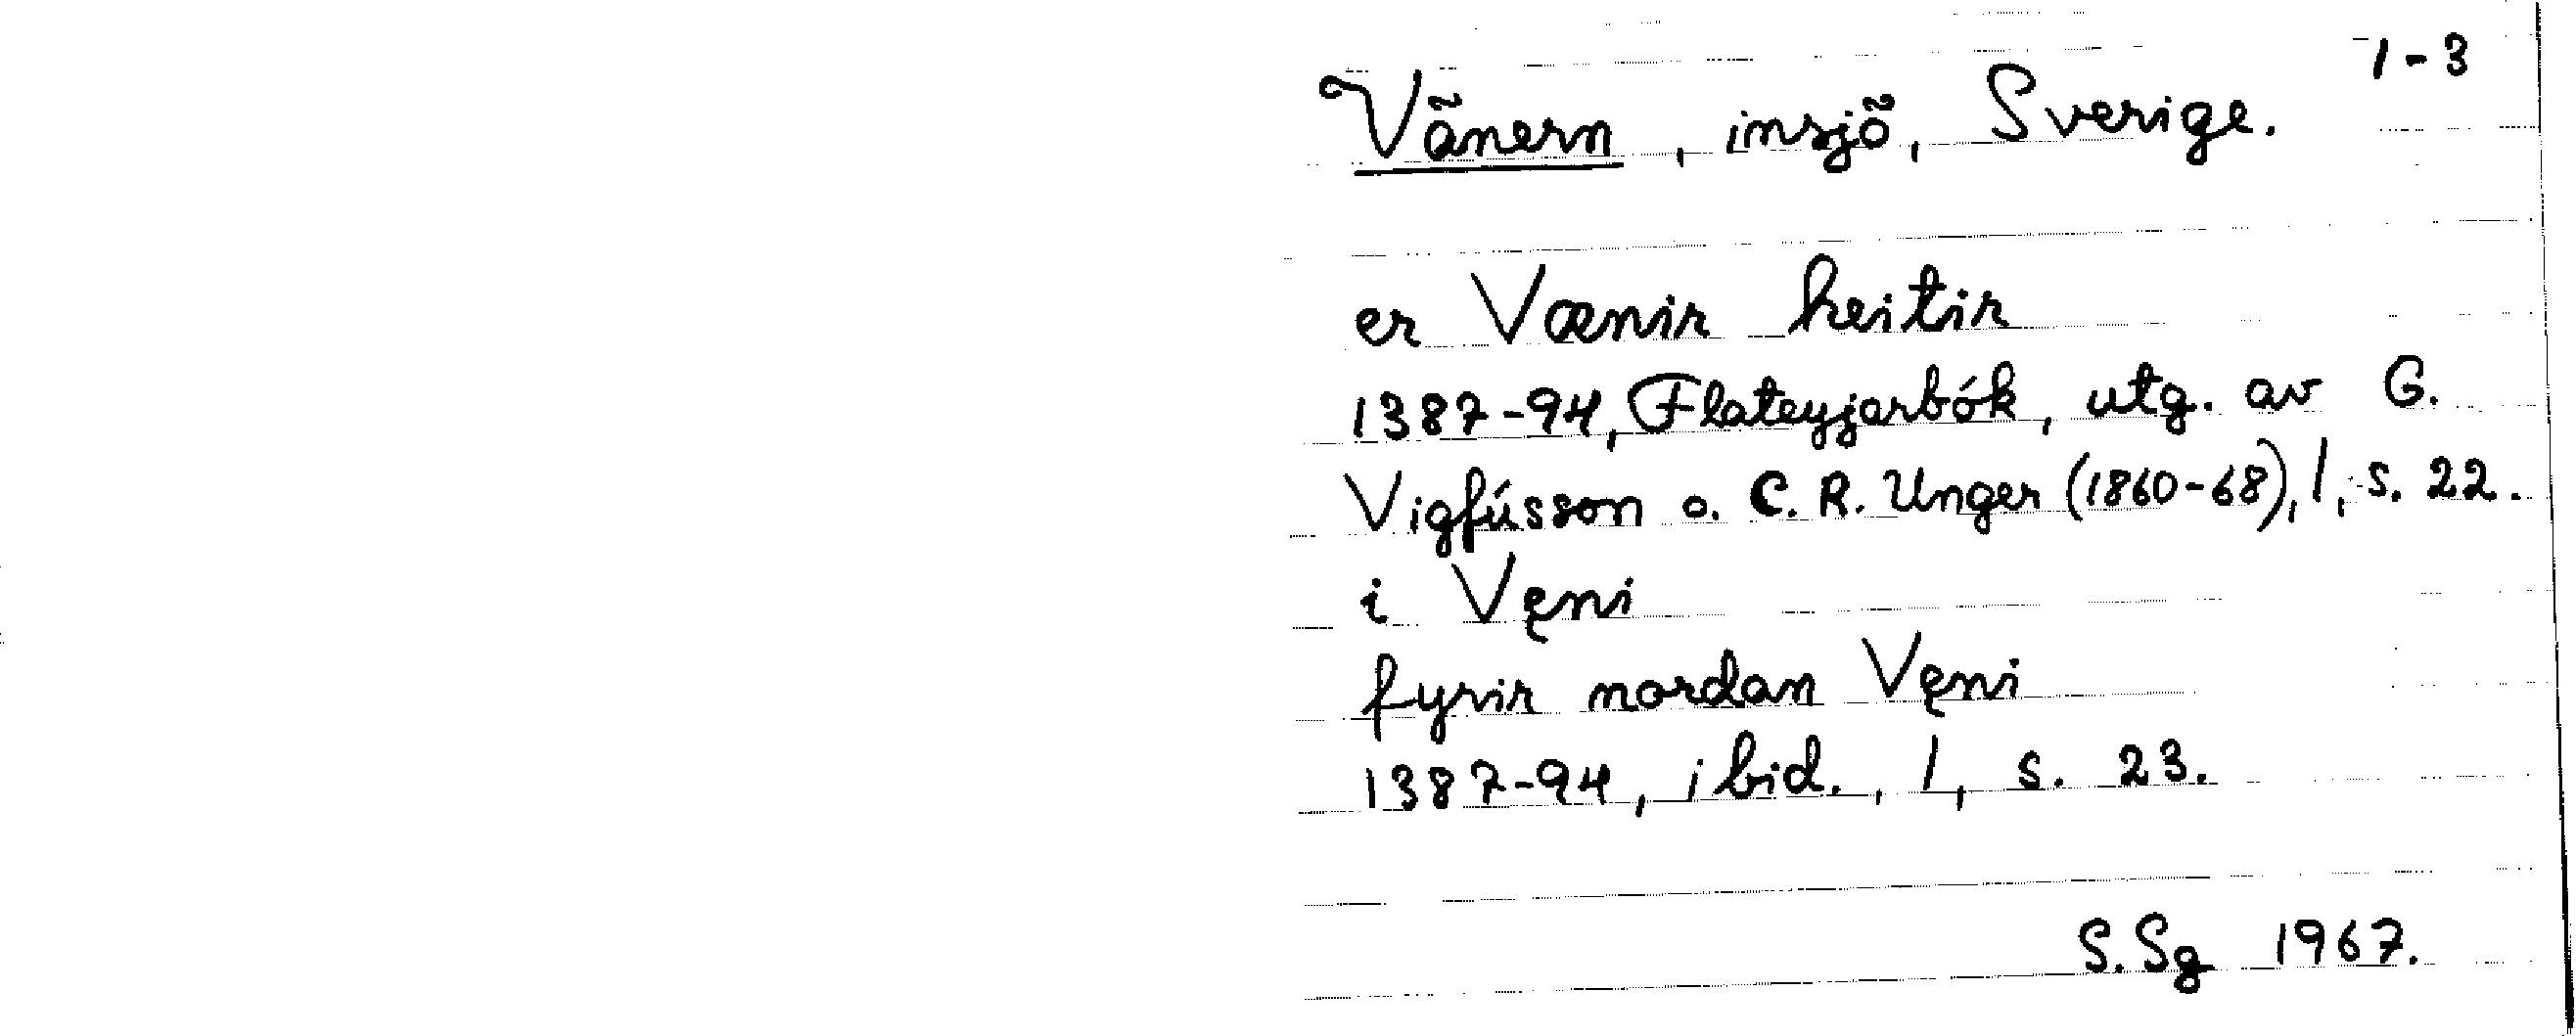 1-3
Vänern, insjö, Sverige.
er Vænir heitir
1387-94, Flateyjarbók, utg. av G.
Vigfússon o. C. R. Unger (1860-68), I, s. 22.
i Vęni
fyrir nordan Vęni
1387-94, ibid., I, s. 23.
S.Sg 1967.